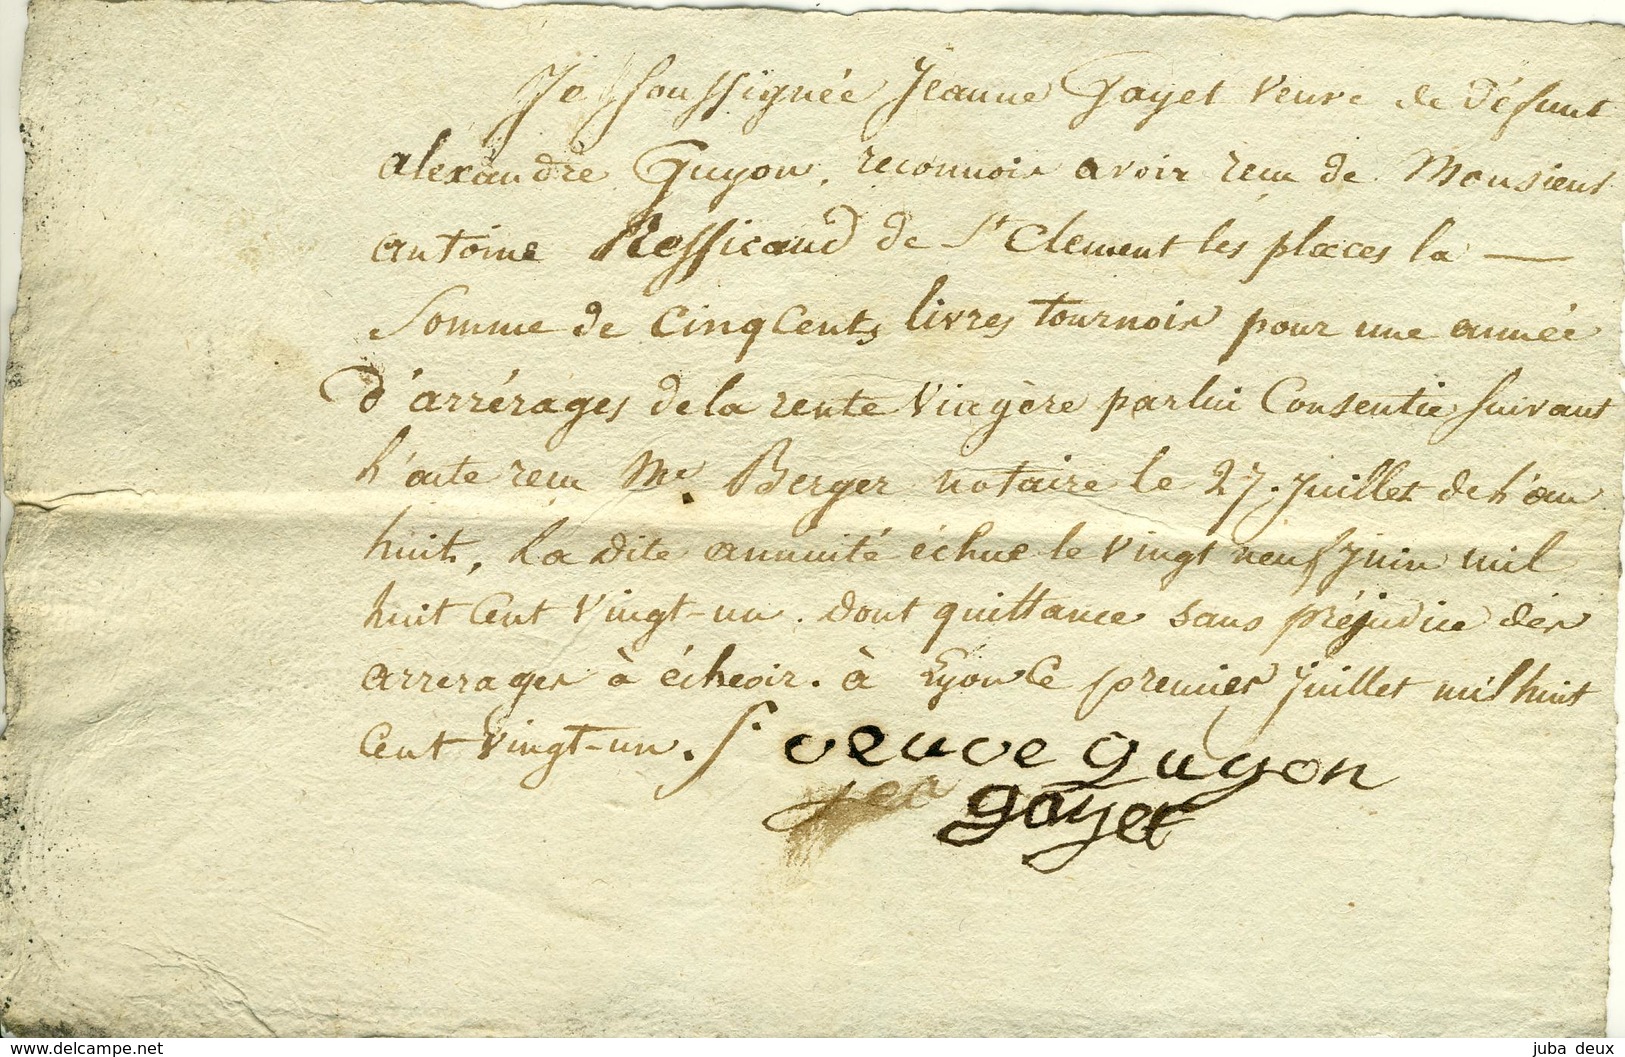 Je soussignée Jeanne Gayet veuve de défunt
alexandre Guyon, reconnois avoir reçu de Monsieur
antoine Rossicaud de St Clement les places la —
Somme de Cinq Cents livres tournois pour une année
d'arrérages de la rente Viagère par lui Consentie suivant
l'acte reçu Me. Berger notaire le 27. Juillet de l'an
huit, la dite annuité échue le vingt neuf juin mil
huit Cent Vingt-un. dont quittance sans préjudice des
arrerages à écheoir. à Lyon le premier Juillet mil huit
Cent vingt-un. S. veuve guyon
gayet
www.delcampe.net
juba deux